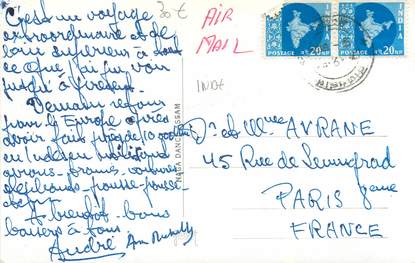 C'est un voyage
extraordinaire et de
loin supérieur à tout
ce que j'ai pu voir
jusqu'à présent.
Demain retour
pour l'Europe après
avoir fait près de 10 000 km
en Inde
avions
pousse-pousse
A bientôt bons
baisers à tous
André
30 €
AIR
MAIL
INDE
NAGA DANCE ASSAM
INDIA
POSTAGE 20 NP
INDIA
POSTAGE 20 NP
Dr et Mme AVRANE
45 Rue de Leningrad
PARIS 8ème
FRANCE